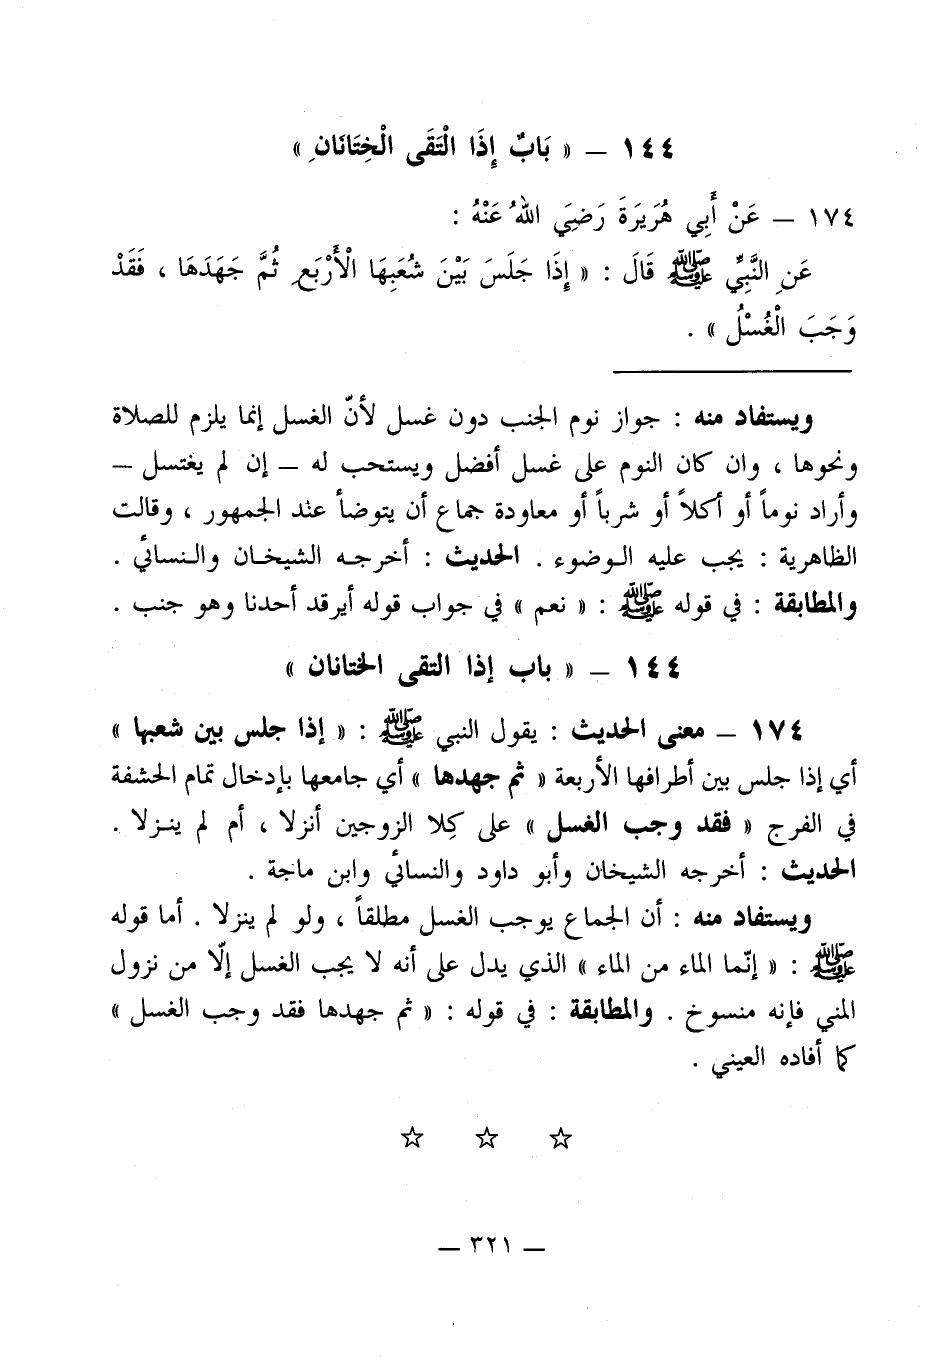 ١٤٤ – « بَابٌ إِذَا الْتَقَى الْخِتَانَانِ »
١٧٤ – عَنْ أَبِي هُرَيرَةَ رَضِيَ اللهُ عَنْهُ :
عَنِ النَّبِيِّ ﷺ قَالَ : « إِذَا جَلَسَ بَيْنَ شُعَبِهَا الْأَرْبَعِ ثُمَّ جَهَدَهَا ، فَقَدْ
وَجَبَ الْغُسْلُ » .
ويستفاد منه : جواز نوم الجنب دون غسل لأنّ الغسل إنما يلزم للصلاة
ونحوها ، وان كان النوم على غسل أفضل ويستحب له – إن لم يغتسل –
وأراد نوماً أو أكلاً أو شرباً أو معاودة جماع أن يتوضأ عند الجمهور ، وقالت
الظاهرية : يجب عليه الوضوء . الحديث : أخرجه الشيخان والنسائي .
والمطابقة : في قوله ﷺ : « نعم » في جواب قوله أيرقد أحدنا وهو جنب .
١٤٤ – « باب إذا التقى الختانان »
١٧٤ – معنى الحديث : يقول النبي ﷺ : « إذا جلس بين شعبها »
أي إذا جلس بين أطرافها الأربعة « ثم جهدها » أي جامعها بإدخال تمام الحشفة
في الفرج « فقد وجب الغسل » على كِلا الزوجين أنزلا ، أم لم ينزلا .
الحديث : أخرجه الشيخان وأبو داود والنسائي وابن ماجة .
ويستفاد منه : أن الجماع يوجب الغسل مطلقاً ، ولو لم ينزلا . أما قوله
ﷺ : « إنّما الماء من الماء » الذي يدل على أنه لا يجب الغسل إلّا من نزول
المني فإنه منسوخ . والمطابقة : في قوله : « ثم جهدها فقد وجب الغسل »
كما أفاده العيني .
☆ ☆ ☆
– ٣٢١ –